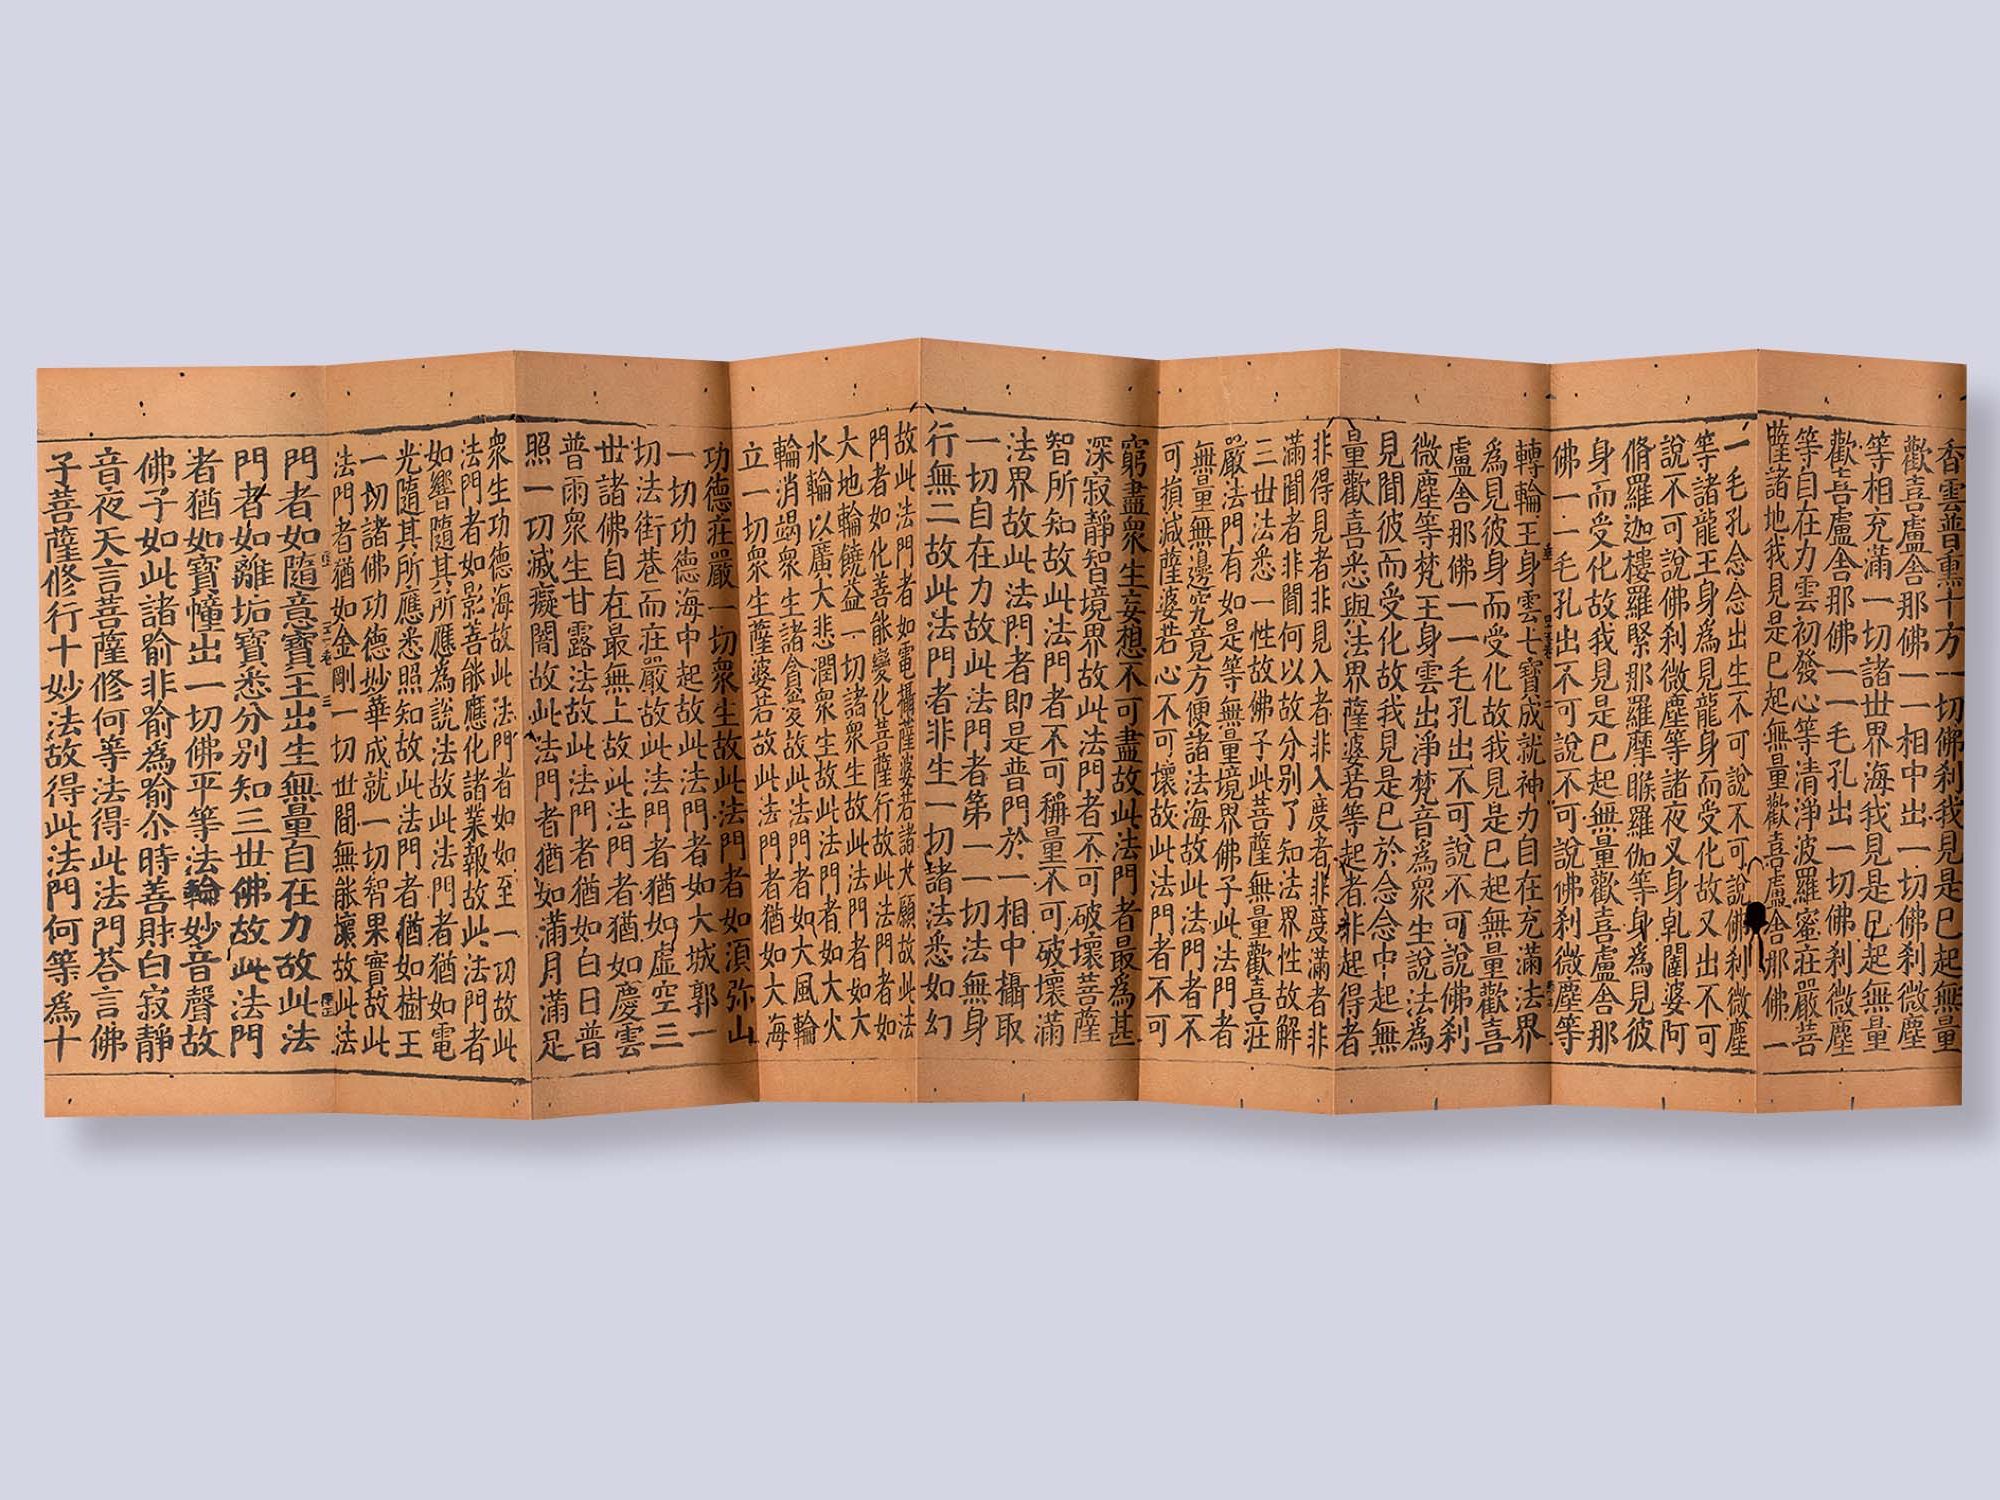 香雲普熏十方一切佛刹我見是已起無量
歡喜盧舍那佛一一相中出一切佛刹微塵
等相充滿一切諸世界海我見是已起無量
歡喜盧舍那佛一一毛孔出一切佛刹微塵
等自在力雲初發心等清淨波羅蜜莊嚴菩
薩諸地我見是已起無量歡喜盧舍那佛一
一毛孔念念出生不可說不可說佛刹微塵
等諸龍王身為見龍身而受化故又出不可
說不可說佛刹微塵等諸夜叉身乹闥婆阿
脩羅迦樓羅緊那羅摩睺羅伽等身為見彼
身而受化故我見是已起無量歡喜盧舍那
佛一一毛孔出不可說不可說佛刹微塵等
轉輪王身雲七寶成就神力自在充滿法界
為見彼身而受化故我見是已起無量歡喜
盧舍那佛一一毛孔出不可說不可說佛刹
微塵等梵王身雲出淨梵音為眾生說法為
見聞彼而受化故我見是已於念念中起無
量歡喜悉與法界薩婆若等起者非起得者
非得見者非見入者非入度者非度滿者非
滿聞者非聞何以故分別了知法界性故解
三世法悉一性故佛子此菩薩無量歡喜莊
嚴法門有如是等無量境界佛子此法門者
無量無邊究竟方便諸法海故此法門者不
可損減薩婆若心不可壞故此法門者不可
窮盡眾生妄想不可盡故此法門者最為甚
深寂靜智境界故此法門者不可破壞菩薩
智所知故此法門者不可稱量不可破壞滿
法界故此法門者即是普門於一相中攝取
一切自在力故此法門者第一一切法無身
行無二故此法門者非生一切諸法悉如幻
故此法門者如電攝薩婆若諸大願故此法
門者如化善能變化菩薩行故此法門者如
大地輪饒益一切諸眾生故此法門者如大
水輪以廣大悲潤眾生故此法門者如大火
輪消竭眾生諸貪愛故此法門者如大風輪
立一切眾生薩婆若故此法門者猶如大海
功德莊嚴一切眾生故此法門者如須弥山
一切功德海中起故此法門者如大城郭一
切法街巷而莊嚴故此法門者猶如虛空三
世諸佛自在最無上故此法門者猶如慶雲
普雨眾生甘露法故此法門者猶如白日普
照一切滅癡闇故此法門者猶如滿月滿足
眾生功德海故此法門者如如至一切故此
法門者如影善能應化諸業報故此法門者
如響隨其所應為說法故此法門者猶如電
光隨其所應悉照知故此法門者猶如樹王
一切諸佛功德妙華成就一切智果實故此
法門者猶如金剛一切世間無能壞故此法
門者如隨意寶王出生無量自在力故此法
門者如離垢寶悉分別知三世佛故此法門
者猶如寶幢出一切佛平等法輪妙音聲故
佛子如此諸喻非喻為喻尒時善財白寂靜
音夜天言菩薩修何等法得此法門荅言佛
子菩薩修行十妙法故得此法門何等為十